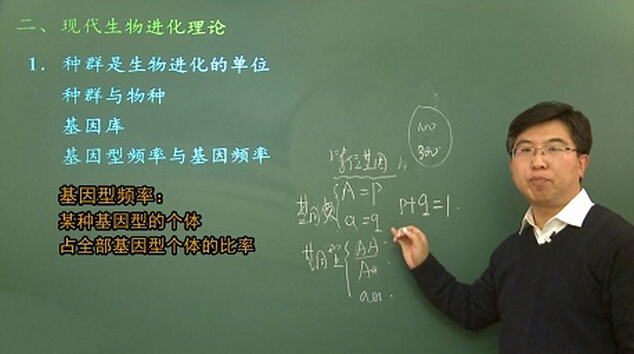 二、现代生物进化理论
1. 种群是生物进化的单位
种群与物种
基因库
基因型频率与基因频率
基因型频率：
某种基因型的个体
占全部基因型个体的比率
100
300
等位基因
A = P
a = q
P+q=1.
基因型
AA
Aa
aa